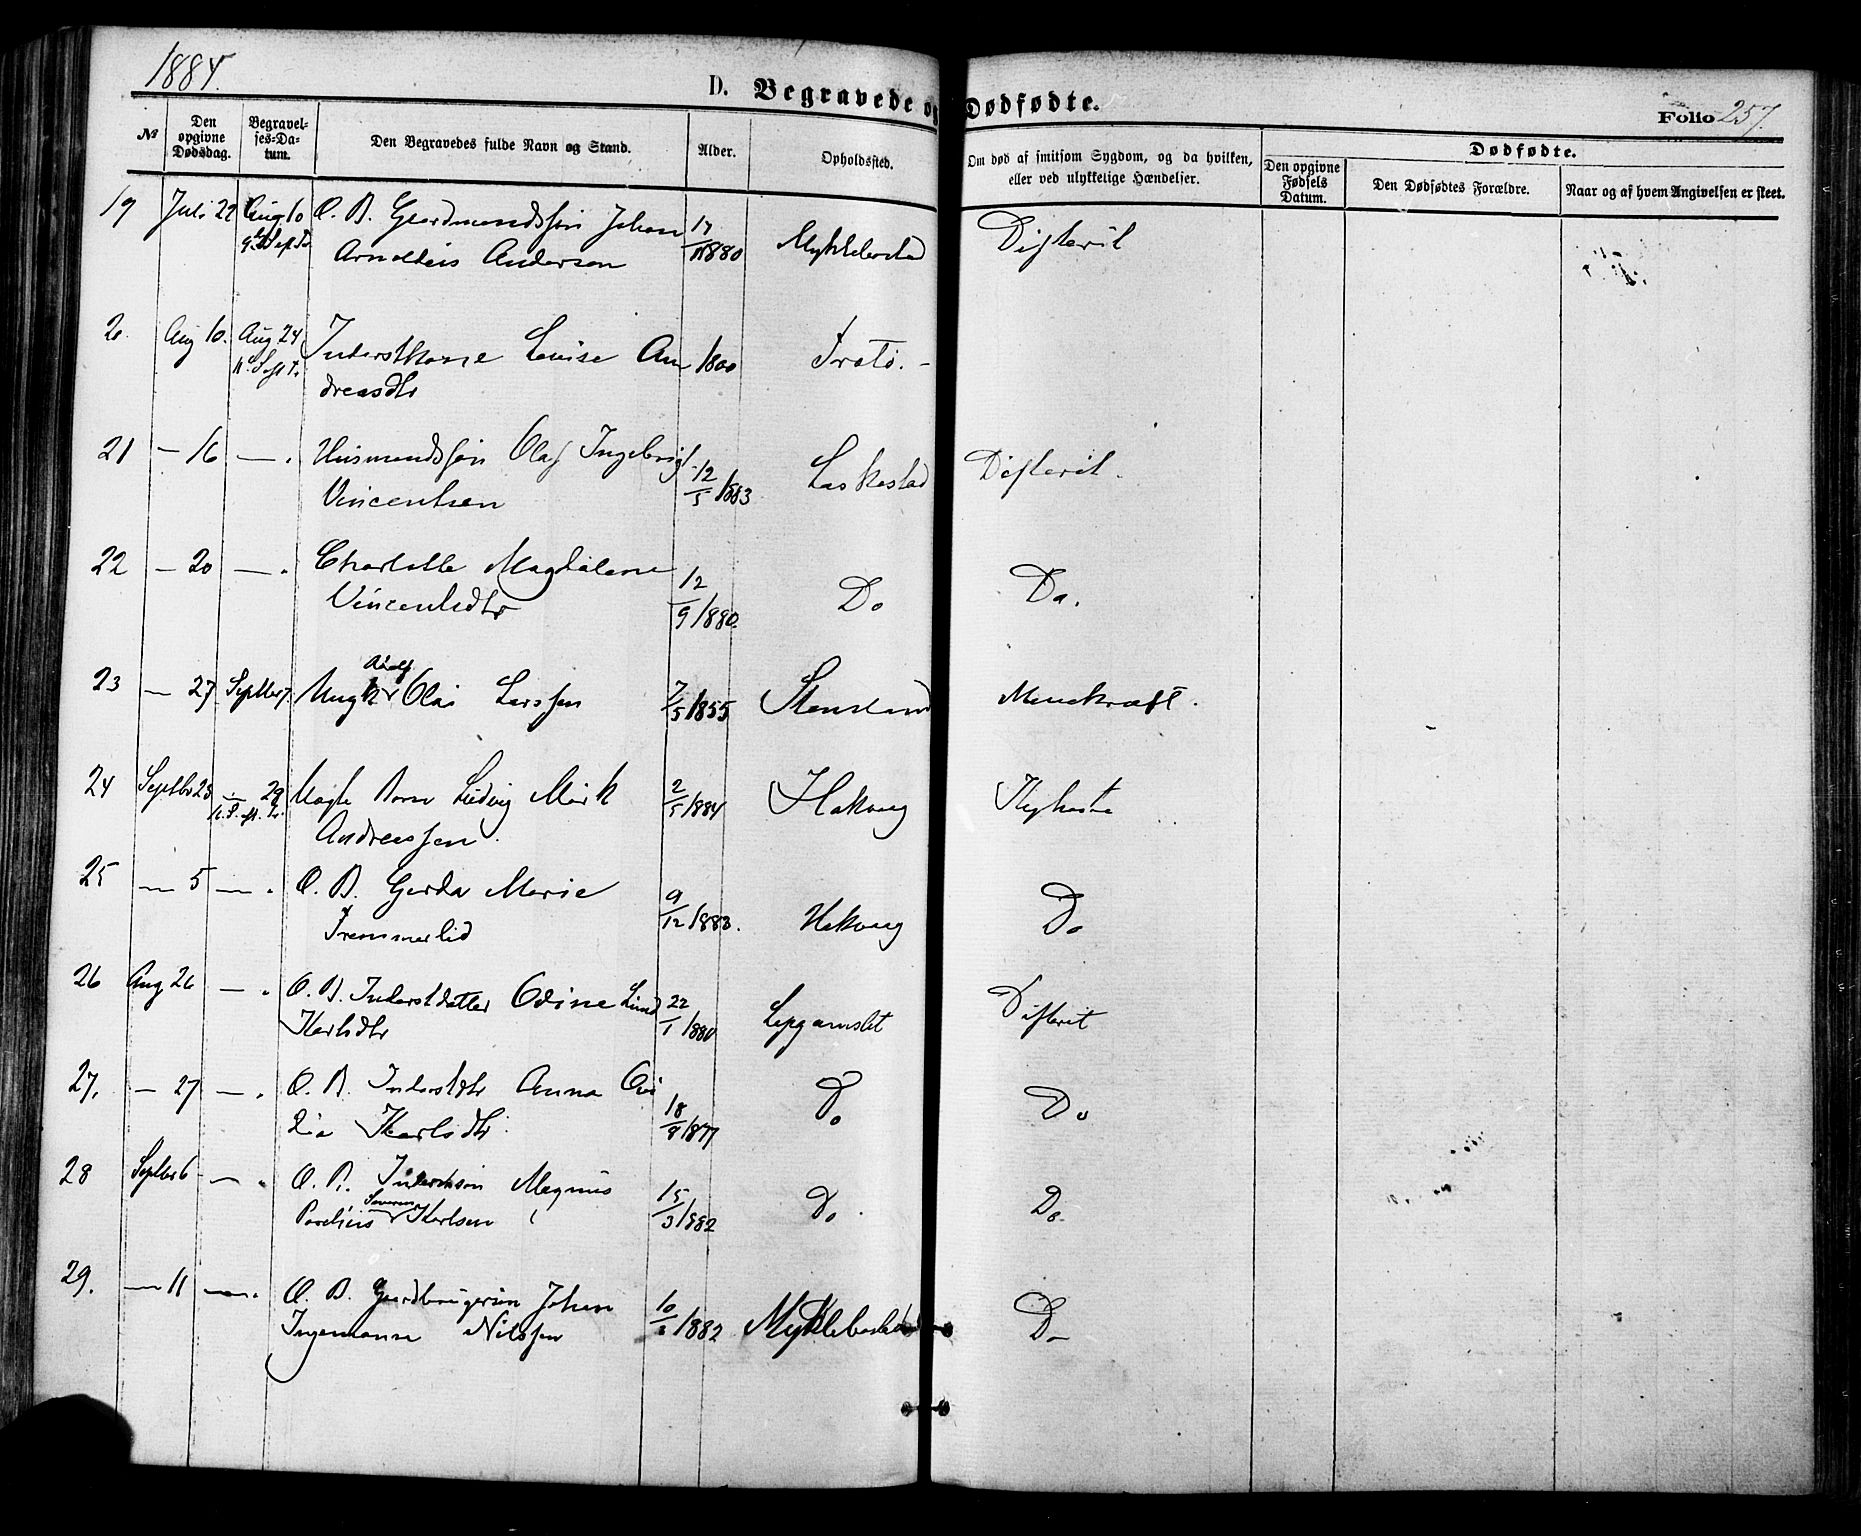 1884.
D. Begravede og Dødfødte.
Folio 257.
№
Den opgivne Dødsdag.
Begravel-
ses-Da-
tum.
Den Begravedes fulde Navn og Stand.
Alder.
Opholdssted.
Om død af smitsom Sygdom, og da hvilken,
eller ved ulykkelige Hændelser.
Dødfødte.
Den opgivne
Fødsels
Datum.
Den Dødfødtes Forældre.
Naar og af hvem Angivelsen er skeet.
19 Juli 22 Aug 10 O. B. Gaardmandssøn Johan 17/11 1880 Mykklebostad Difterit
Arnoldius Andersen
20. Aug 10. Aug 24 Inderstkone Lovise An 1800
dreasdtr
21 — 16 — . Husmandssøn Olaf Ingebrigt 12/5 1883 Laskestad Difterit.
Vincentsen
22 — 20 — . Charlotte Magdalene 12/9 1880. Do Do.
Vincentsdtr
23 — 27 Septber 7. Ungk Adolf Olai Larssen 7/5 1855 Stensland
24 Septbr — 29 Ægte Barn Ludvig Mørk 2/5 1884 Hakvaag Kighoste
Andreassen.
25 — 5 — . O. B. Gerda Marie 9/12 1883. Hakvaag Do
Tremmerlid
26 Aug 26 — . O. B. Inderstdatter Odine Lund 22/1 1880 Difterit
Karlsdtr
27. — 27 — . O. B. Inderstdtr Anna Ovi 18/8 1877 Do Do
dia Karlsdtr.
28 Septber 6 — . O. B. Inderstsøn Magnus 15/3 1882 Do. Do.
Severin Karlsen
29. — 11 — . O. B. Gaardbrugersøn Johan 10/ 1882 Myklebostad Do
Ingemann Nilssen